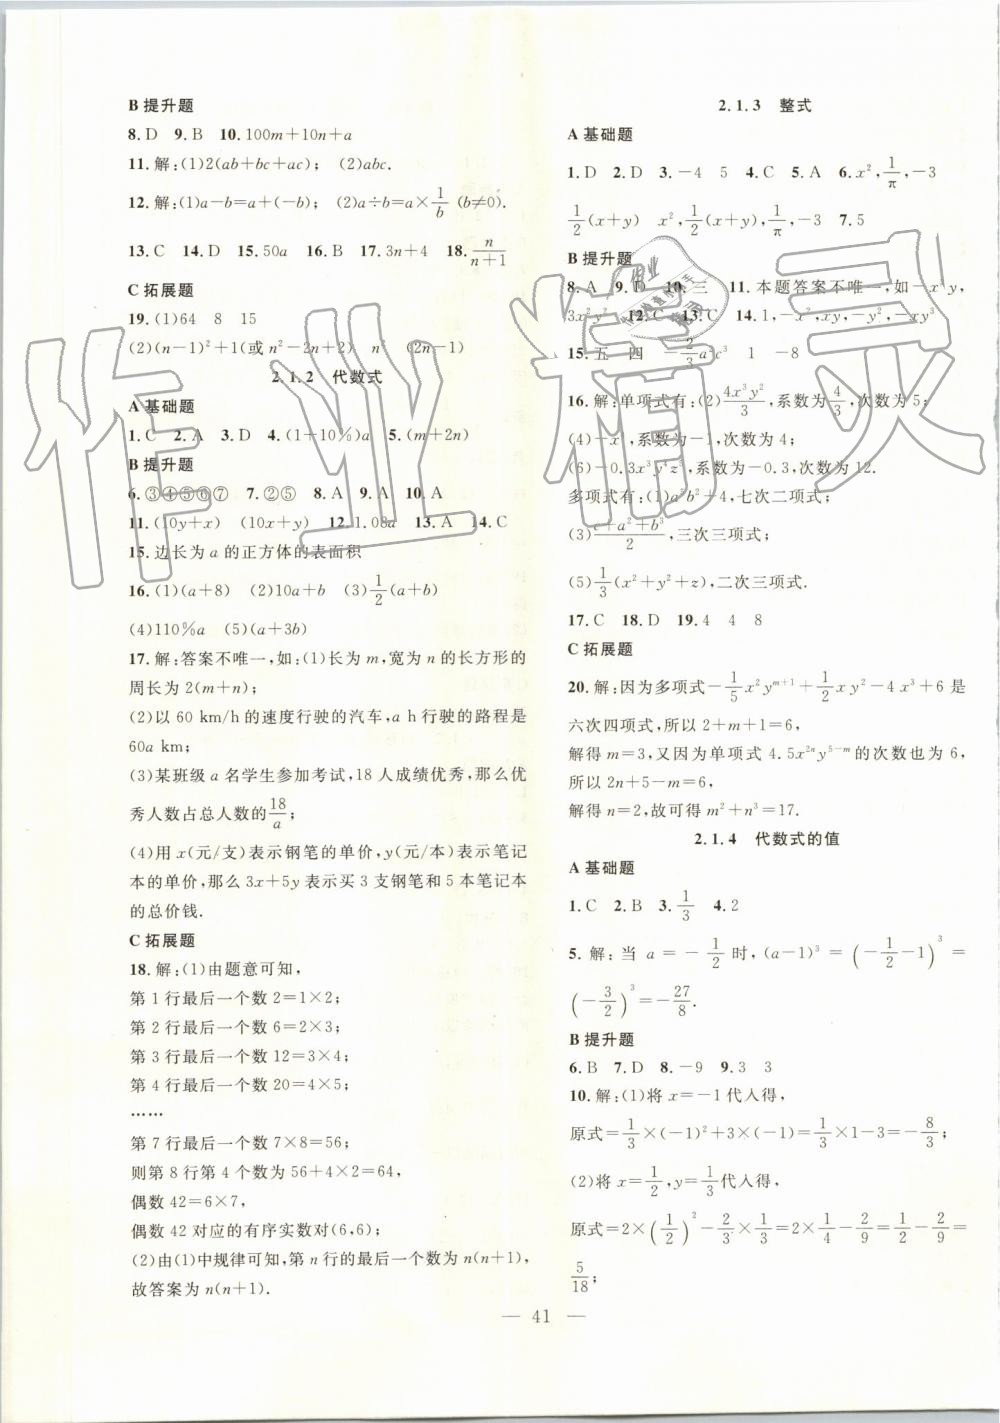 B 提升题
8. D  9. B  10. 100m+10n+a
11. 解:(1)2(ab+bc+ac);  (2)abc.
12. 解:(1)a-b=a+(-b);  (2)a÷b=a×1/b (b≠0).
13. C  14. D  15. 50a  16. B  17. 3n+4  18. n/(n+1)
C 拓展题
19. (1)64  8  15
(2)(n-1)²+1(或 n²-2n+2)  n²  (2n-1)
2.1.2  代数式
A 基础题
1. C  2. A  3. D  4. (1+10%)a  5. (m+2n)
B 提升题
6. ③④⑤⑥⑦  7. ②⑤  8. A  9. A  10. A
11. (10y+x)  (10x+y)  12. 1.08a  13. A  14. C
15. 边长为 a 的正方体的表面积
16. (1)(a+8)  (2)10a  (3)1/2(a+b)
(4)110%a  (5)(a+3b)
17. 解:答案不唯一,如:(1)长为 m,宽为 n 的长方形的
周长为 2(m+n);
(2)以 60 km/h 的速度行驶的汽车,a h 行驶的路程是
60a km;
(3)某班级 a 名学生参加考试,18 人成绩优秀,那么优
秀人数占总人数的18/a;
(4)用 x(元/支)表示钢笔的单价,y(元/本)表示笔记
本的单价,那么 3x+5y 表示买 3 支钢笔和 5 本笔记本
的总价钱.
C 拓展题
18. 解:(1)由题意可知,
第 1 行最后一个数 2=1×2;
第 2 行最后一个数 6=2×3;
第 3 行最后一个数 12=3×4;
第 4 行最后一个数 20=4×5;
……
第 7 行最后一个数 7×8=56;
则第 8 行第 4 个数为 56+4×2=64,
偶数 42=6×7,
偶数 42 对应的有序实数对(6,6);
(2)由(1)中规律可知,第 n 行的最后一个数为 n(n+1),
故答案为 n(n+1).
2.1.3  整式
A 基础题
1. D  2. D  3. -4  5  4. C  5. A  6. x²,1/π,-3
1/2(x+y)  x²,1/2(x+y),1/π,-3  7. 5
B 提升题
8. A  9. D  10. 三  11. 本题答案不唯一,如-x³y,
3x²y²  12. C  13. C  14. 1,-x²,xy,-y²,-xy³
15. 五  四  1  -8
16. 解:单项式有:(2)4x³y²/3,系数为4/3,次数为 5;
系数为-1,次数为 4;
系数为-0.3,次数为 12.
七次二项式;
三次三项式;
(5)1/3(x²+y²+z),二次三项式.
17. C  18. D  19. 4  4  8
C 拓展题
20. 解:因为多项式-1/5x²yᵐ⁺¹+1/2xy²-4x³+6 是
六次四项式,所以 2+m+1=6,
解得 m=3,又因为单项式 4.5x²ⁿy⁵⁻ᵐ的次数也为 6,
所以 2n+5-m=6,
解得 n=2,故可得 m²+n³=17.
2.1.4  代数式的值
A 基础题
1. C  2. B  3. 1/3  4. 2
5. 解:当 a=-1/2 时,(a-1)³=(-1/2-1)³=
(-3/2)³=-27/8.
B 提升题
6. B  7. D  8. -9  9. 3  3
10. 解:(1)将 x=-1 代入得,
原式=1/3×(-1)²+3×(-1)=1/3×1-3=-8/3;
(2)将 x=1/2,y=1/3代入得,
原式=2×(1/2)²-2/3×1/3=2×1/4-2/9=1/2-2/9=
5/18;
— 41 —
作业精灵